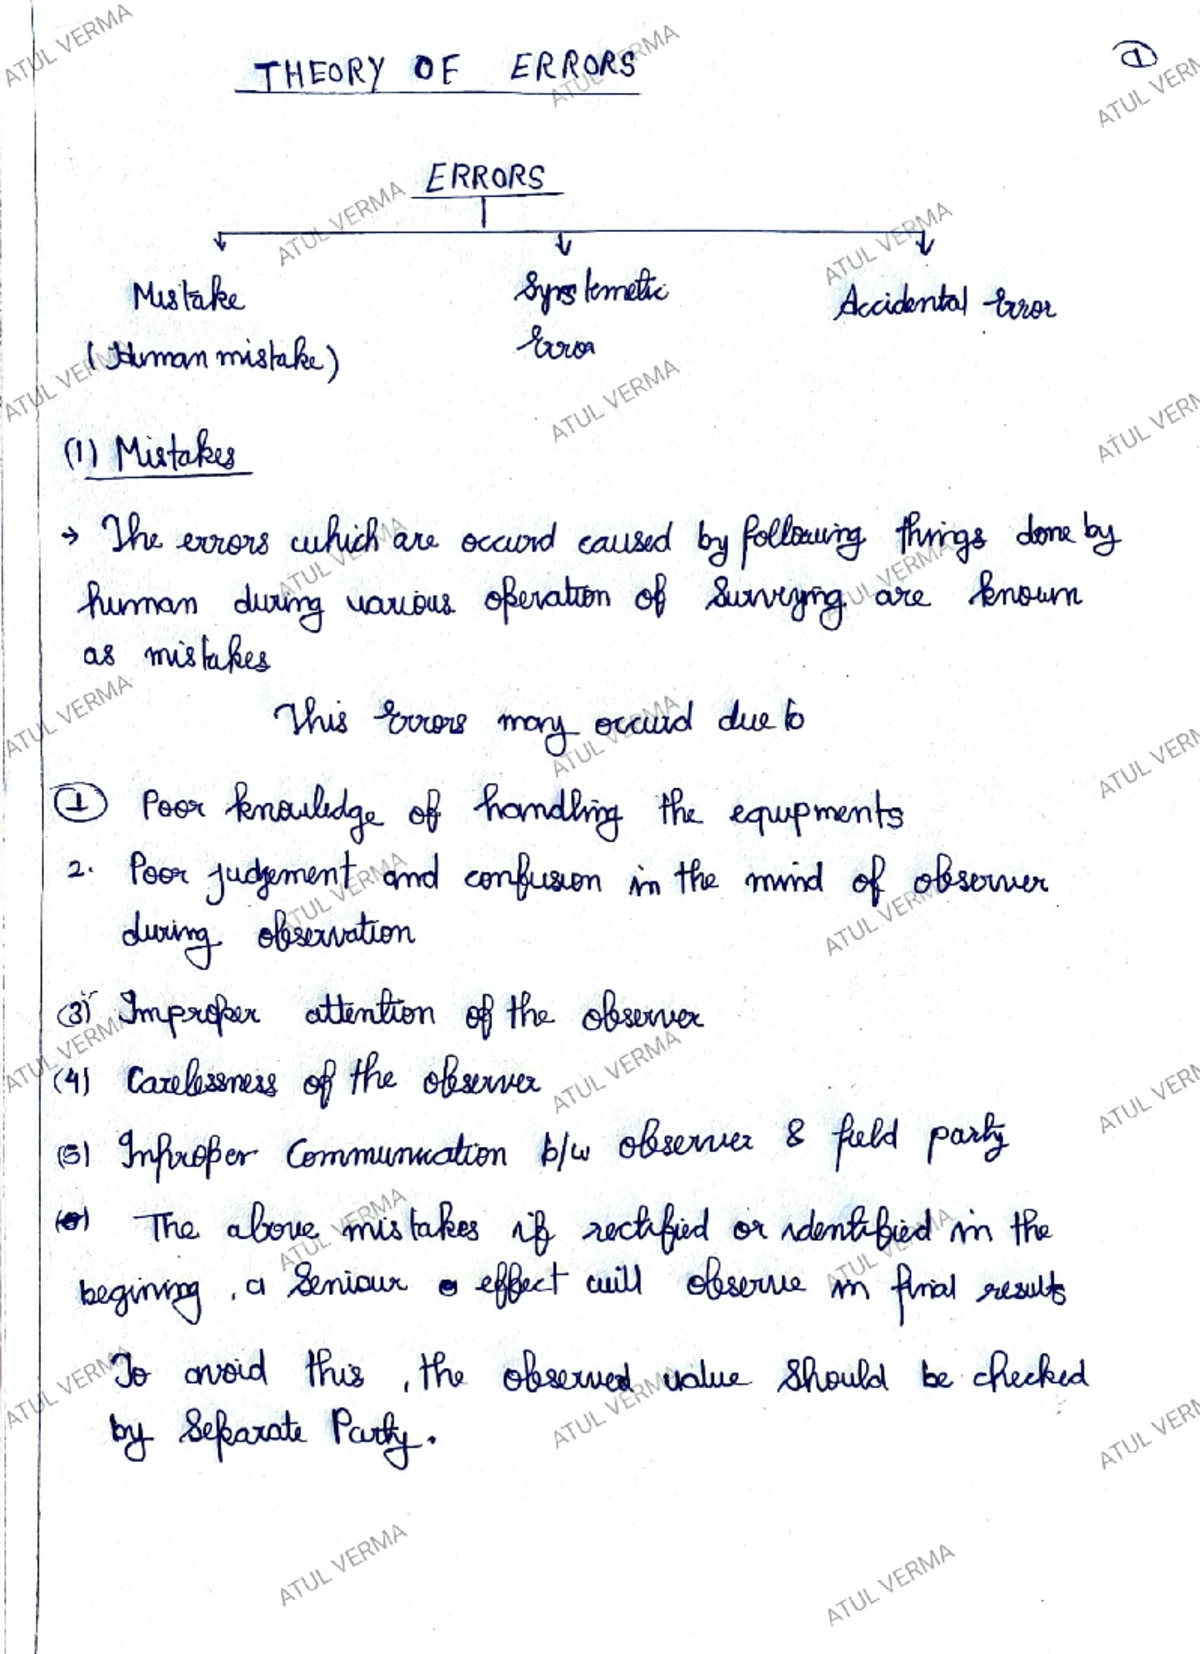 THEORY OF ERRORS
①
ERRORS
Mistake
Systemetic
Accidental Error
(Human mistake)
Error
(1) Mistakes
→ The errors which are occurd caused by following things done by
human during various operation of Surveying are known
as mistakes
This Errors may occurd due to
① Poor knowledge of handling the equpments
2. Poor judgement and confusion in the mind of observer
during observation
(3) Improper attention of the observer
(4) Carelessness of the observer
(5) Improper Communication b/w observer & field party
The above mistakes if rectified or identified in the
begining, a Seriour effect will observe in final results
To avoid this, the observed value should be checked
by Separate Party.
ATUL VERMA